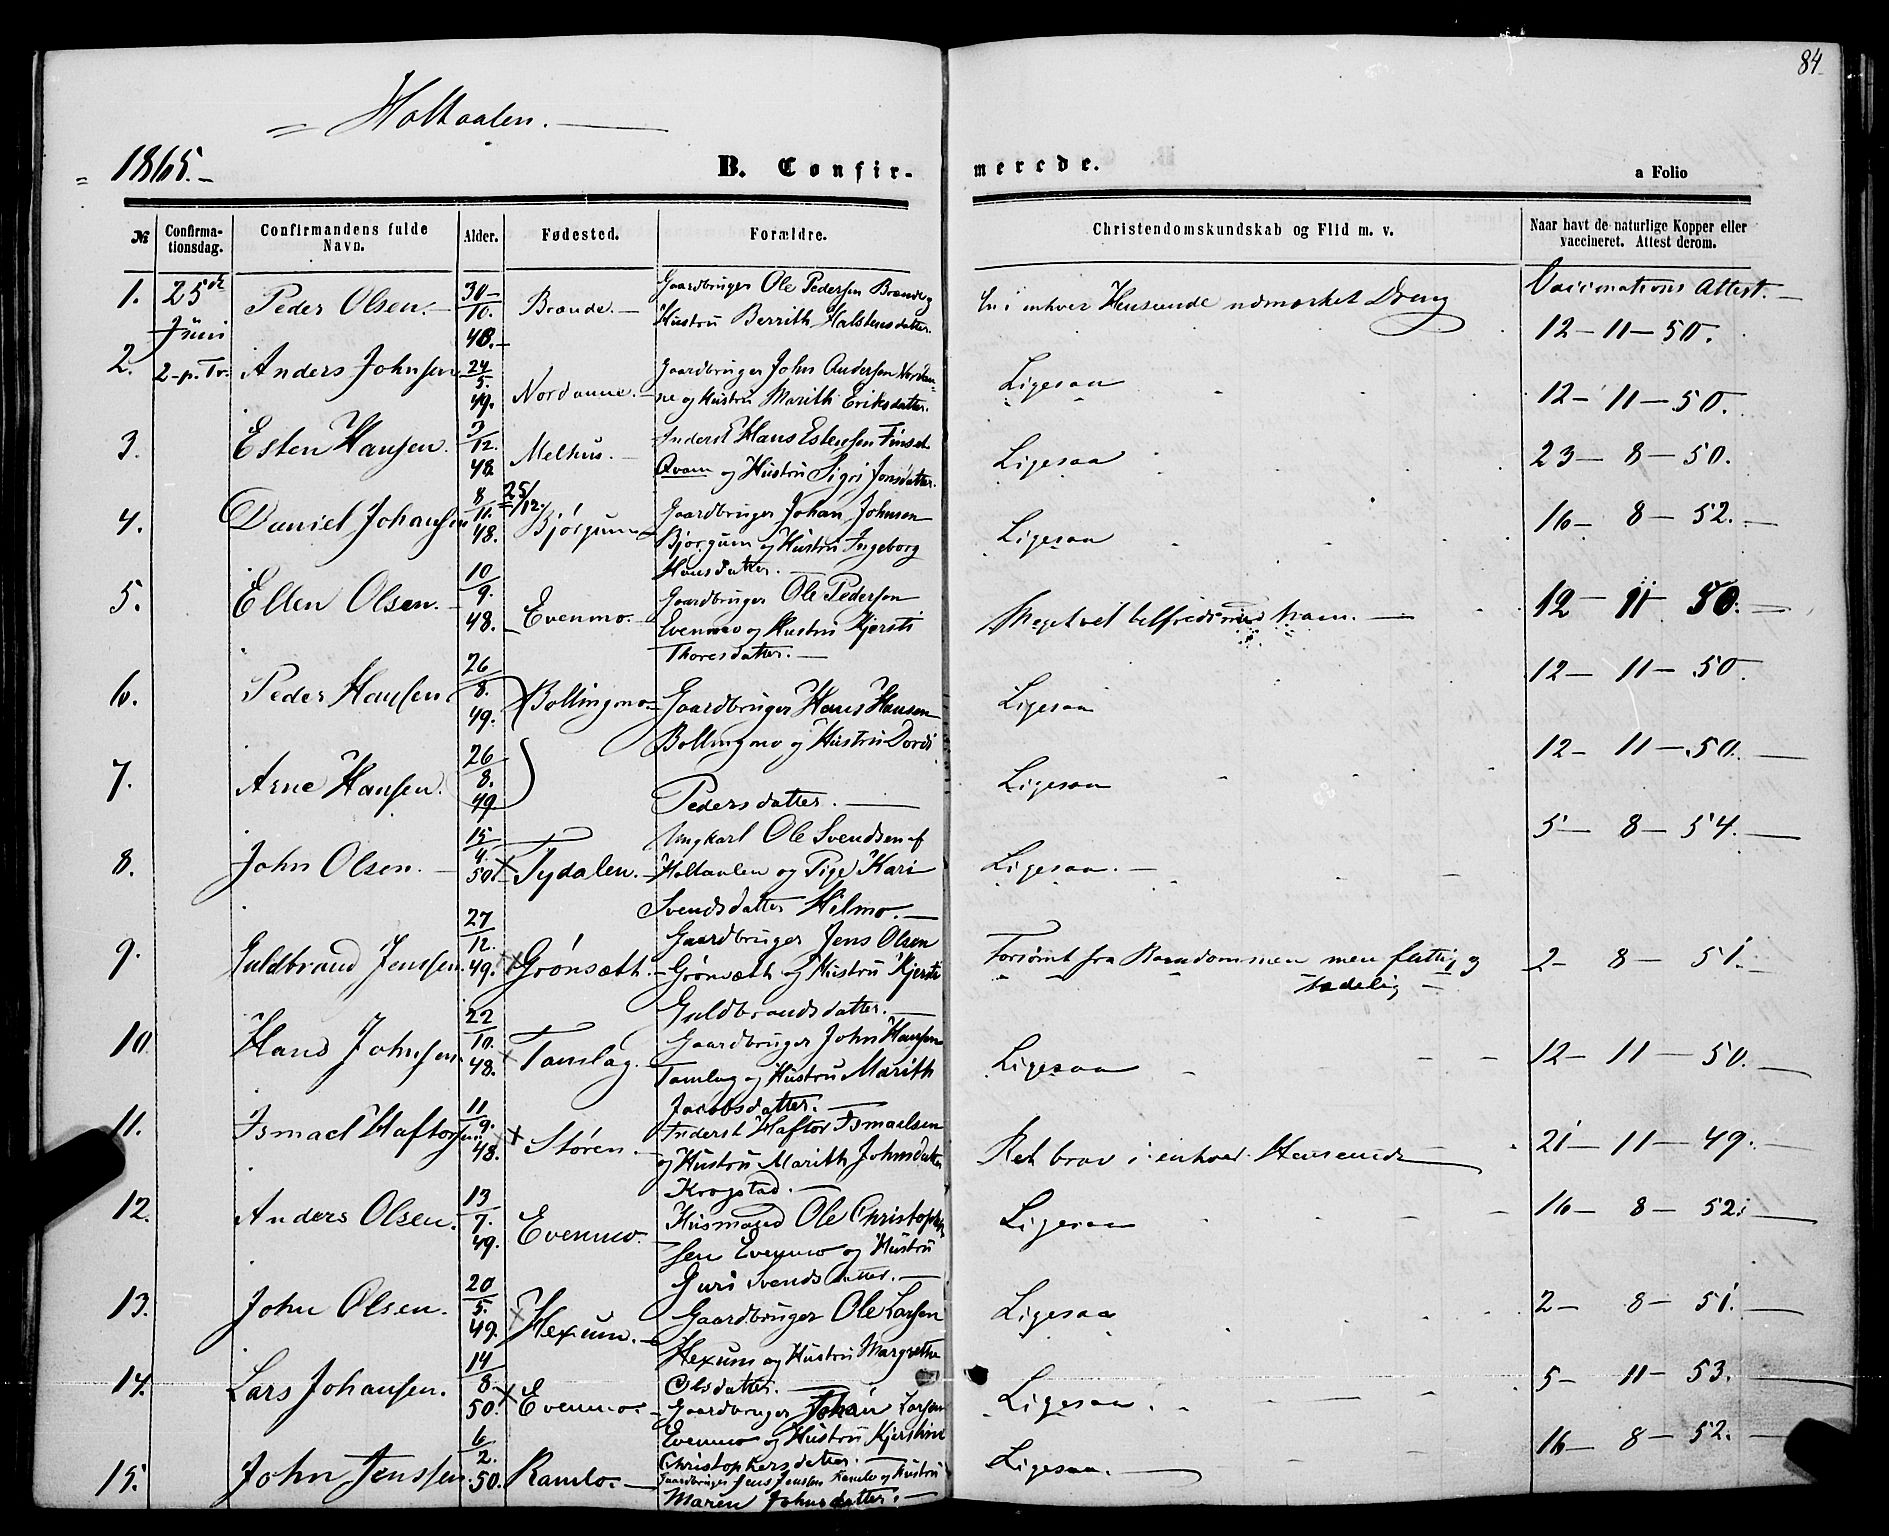 84
= Holtaalen. —
= 1865. —
B. Confir- merede.
a Folio
№ Confirmationsdag. Confirmandens fulde Navn. Alder. Fødested. Forældre. Christendomskundskab og Flid m. v. Naar havt de naturlige Kopper eller vaccineret. Attest derom.
1. 25de Juni Peder Olsen. — 30/10. 48. Brænde. —
Gaardbruger Ole Pedersen Brænde og
Hustru Berrith Halstensdatter.
En i enhver Henseende udmærket Dreng
Vaccinations Attest. —
12 — 11 — 50.
2. 2. p. Tr. Anders Johnsen 24/5. 49. Nordaune. —
Gaardbruger John Andersen Nordau-
ne og Hustru Marith Eriksdatter.
Ligesaa
12 — 11 — 50.
3. Esten Hansen. 3/12. 48. Melhus. —
Inderst Hans Estensen Finset
Qvam og Hustru Sigri Jonsdatter.
Ligesaa
23 — 8 — 50.
4. Daniel Johansen 8/11. 48. 25/12. Bjørgum
Gaardbruger Johan Johnsen
Bjørgum og Hustru Ingeborg
Hansdatter. —
Ligesaa
16 — 8 — 52. —
5. Ellen Olsen. — 10/9. 48. Evenmo. —
Gaardbruger Ole Pedersen
Evenmo og Hustru Kjersti
Thoresdatter. —
Meget vel tilfreds med ham. —
12 — 11 — 50. —
6. Peder Hansen. 26/8. 49. Bollingmo. —
Gaardbruger Hans Hansen
Bollingmo og Hustru Dordi
Ligesaa
12 — 11 — 50
7. Arne Hansen. 26/8. 49
Pedersdatter. —
Ligesaa
12 — 11 — 50. —
8. John Olsen. — 15/4. 50 × Tydalen. —
Ungkarl Ole Svendsen af
Holtaalen og Pige Kari
Svendsdatter Hilmo. —
Ligesaa. —
5 — 8 — 54. —
9. Guldbrand Jenssen. 27/12. 49. × Grønsæth. —
Gaardbruger Jens Olsen
Grønsæth og Hustru Kjersti
Guldbrandsdatter. —
Forsømt fra Barndommen men flittig og
sædelig —
2 — 8 — 51. —
10 Hans Johnsen. 22/10. 48. × Tamlag. —
Gaardbruger John Hansen
Tamlag og Hustru Marith
Jacobsdatter. —
Ligesaa
12 — 11 — 50. —
11. Ismael Haftorsen 11/9. 48. × Støren. —
Inderst Haftor Ismaelsen
og Hustru Marith Johnsdatter
Krogstad. —
Ret brav i enhver Henseende
21 — 11 — 49. —
12. Anders Olsen. 13/7. 49. Evenmo. —
Husmand Ole Christopher-
sen Evenmo og Hustru
Guri Svendsdatter. —
Ligesaa
16 — 8 — 52. —
13. John Olsen. 20/5. 49. × Hexum. —
Gaardbruger Ole Larsen
Hexum og Hustru Margrethe
Olsdatter. —
Ligesaa
2 — 8 — 51. —
14. Lars Johansen. 14/8. 50. × Evenmo. —
Gaardbruger Johan Larsen
Evenmo og Hustru Kjerstine
Christophersdatter. —
Ligesaa.
5 — 11 — 53. —
15. John Jenssen 6/2. 50. Ramlo. —
Gaardbruger Jens Jensen Ramlo og Hustru
Maren Johnsdatter. —
Ligesaa. —
16 — 8 — 52. —